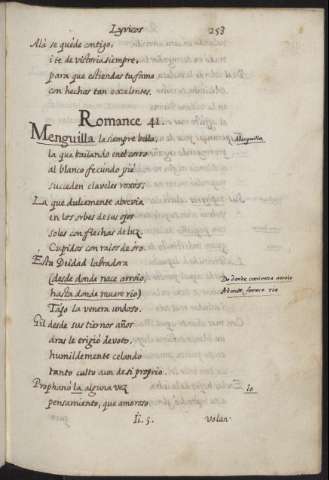 Lyricos 253
Alà se quede contigo,
i te dè victoria siempre,
para que estiendas tu fama
con hechos tan excelentes.
Romance 41.
Menguilla la siempre bella, Menguilla
la que bailando en el corro
al blanco fecundo pie
suceden claveles roxos;
La que dulcemente abrevia
en los orbes de sus ojos
soles con flechas de luz,
Cupidos con raios de oro.
Ésta Deidad labradora
(desde donde nace arroio, De donde comienza arroio
hasta donde muere rio) Adonde fenece rio
Tajo la venera undoso.
Gil desde sus tiernos años
aras le erigiò devoto,
humildemente celando
tanto culto aun de si proprio.
Prophanò la alguna vez io
pensamiento, que amoroso
Ii. 5. Volan